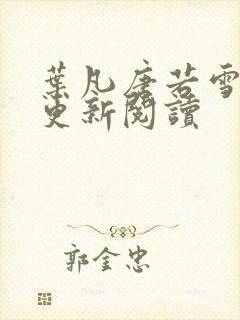 葉凡唐若雪
更新閱讀
郭金忠